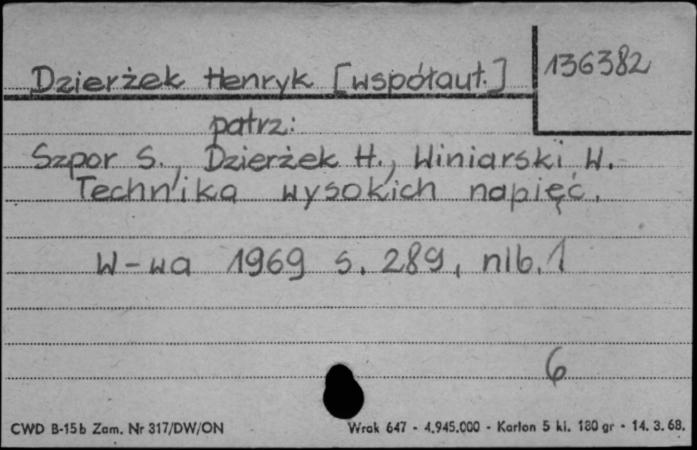 Dzierżek Henryk [współaut.] 136382
patrz:
Szpor S., Dzierżek H., Winiarski W.
Technika wysokich napięć.
W-wa 1969 s. 289, nlb. 1
6
CWD B-15b Zam. Nr 317/DW/ON Wrak 647 - 4.945.000 - Karton 5 kl. 180 gr - 14. 3. 68.